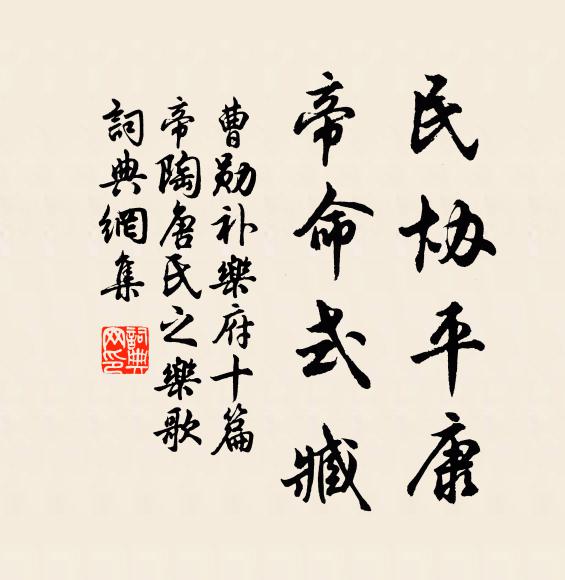 民协平康
帝命式臧
曹勋补樂府十篇
帝陶唐民之樂歌
詞典網集
詞典網印